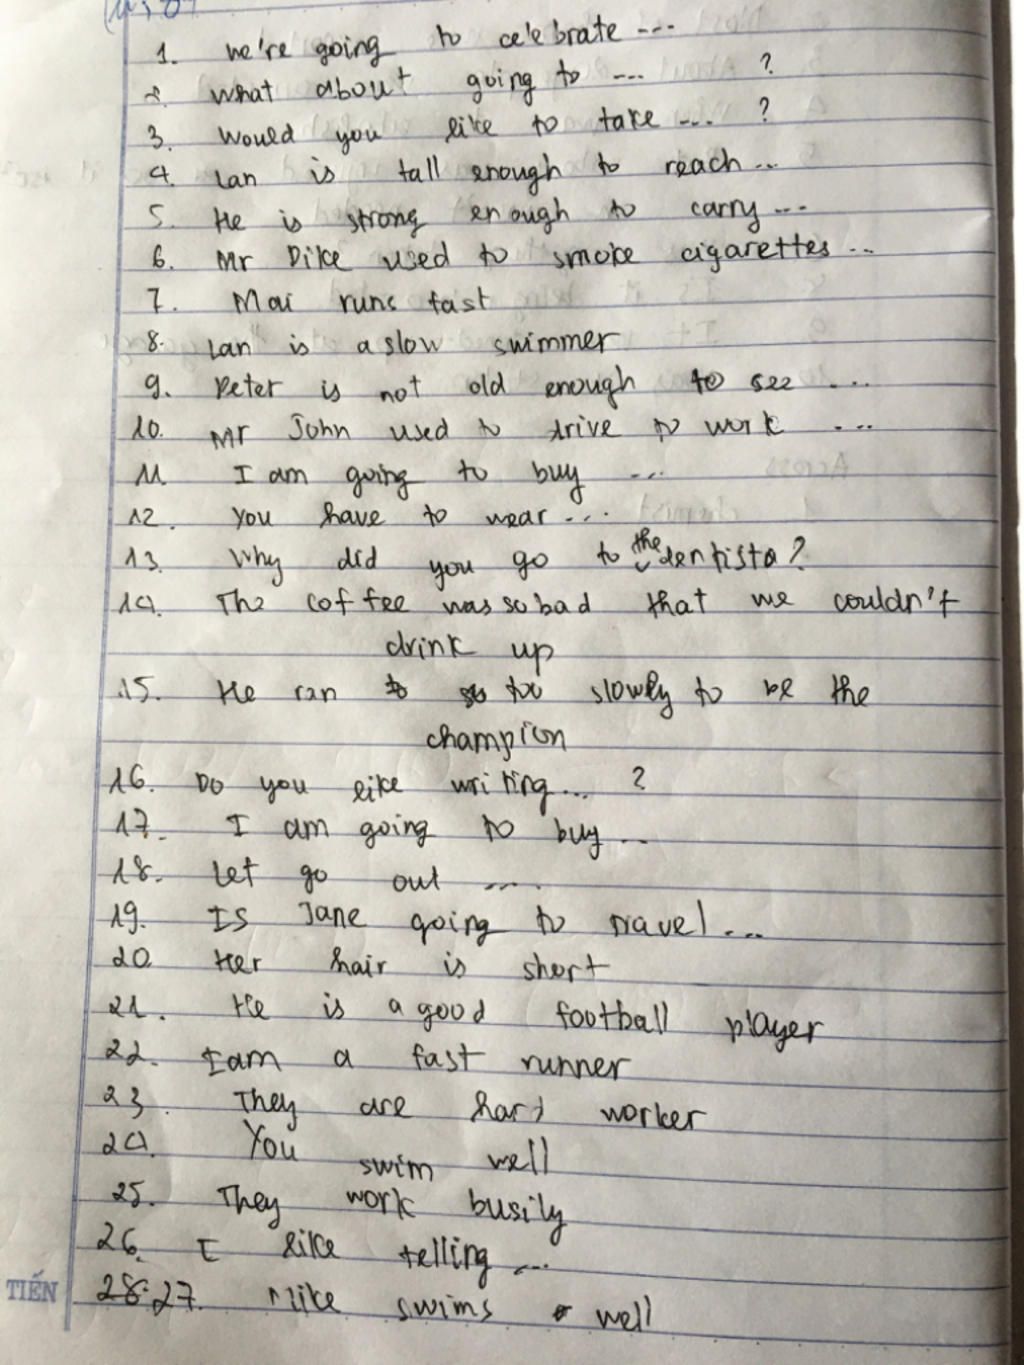 1. We're going to celebrate ...
2. What about going to ... ?
3. Would you like to take ... ?
4. Lan is tall enough to reach ...
5. He is strong enough to carry ...
6. Mr Dike used to smoke cigarettes ...
7. Mai runs fast
8. Lan is a slow swimmer
9. Peter is not old enough to see ...
10. Mr John used to drive to work ...
11. I am going to buy ...
12. You have to wear ...
13. Why did you go to the dentista?
14. The coffee was so bad that we couldn't
drink up
15. He ran too slowly to be the
champion
16. Do you like writing ... ?
17. I am going to buy ...
18. Let go out ....
19. Is Jane going to travel ...
20. Her hair is short
21. He is a good football player
22. I am a fast runner
23. They are hard worker
24. You swim well
25. They work busily
26. I like telling ...
27. Mike swims well
TIẾN